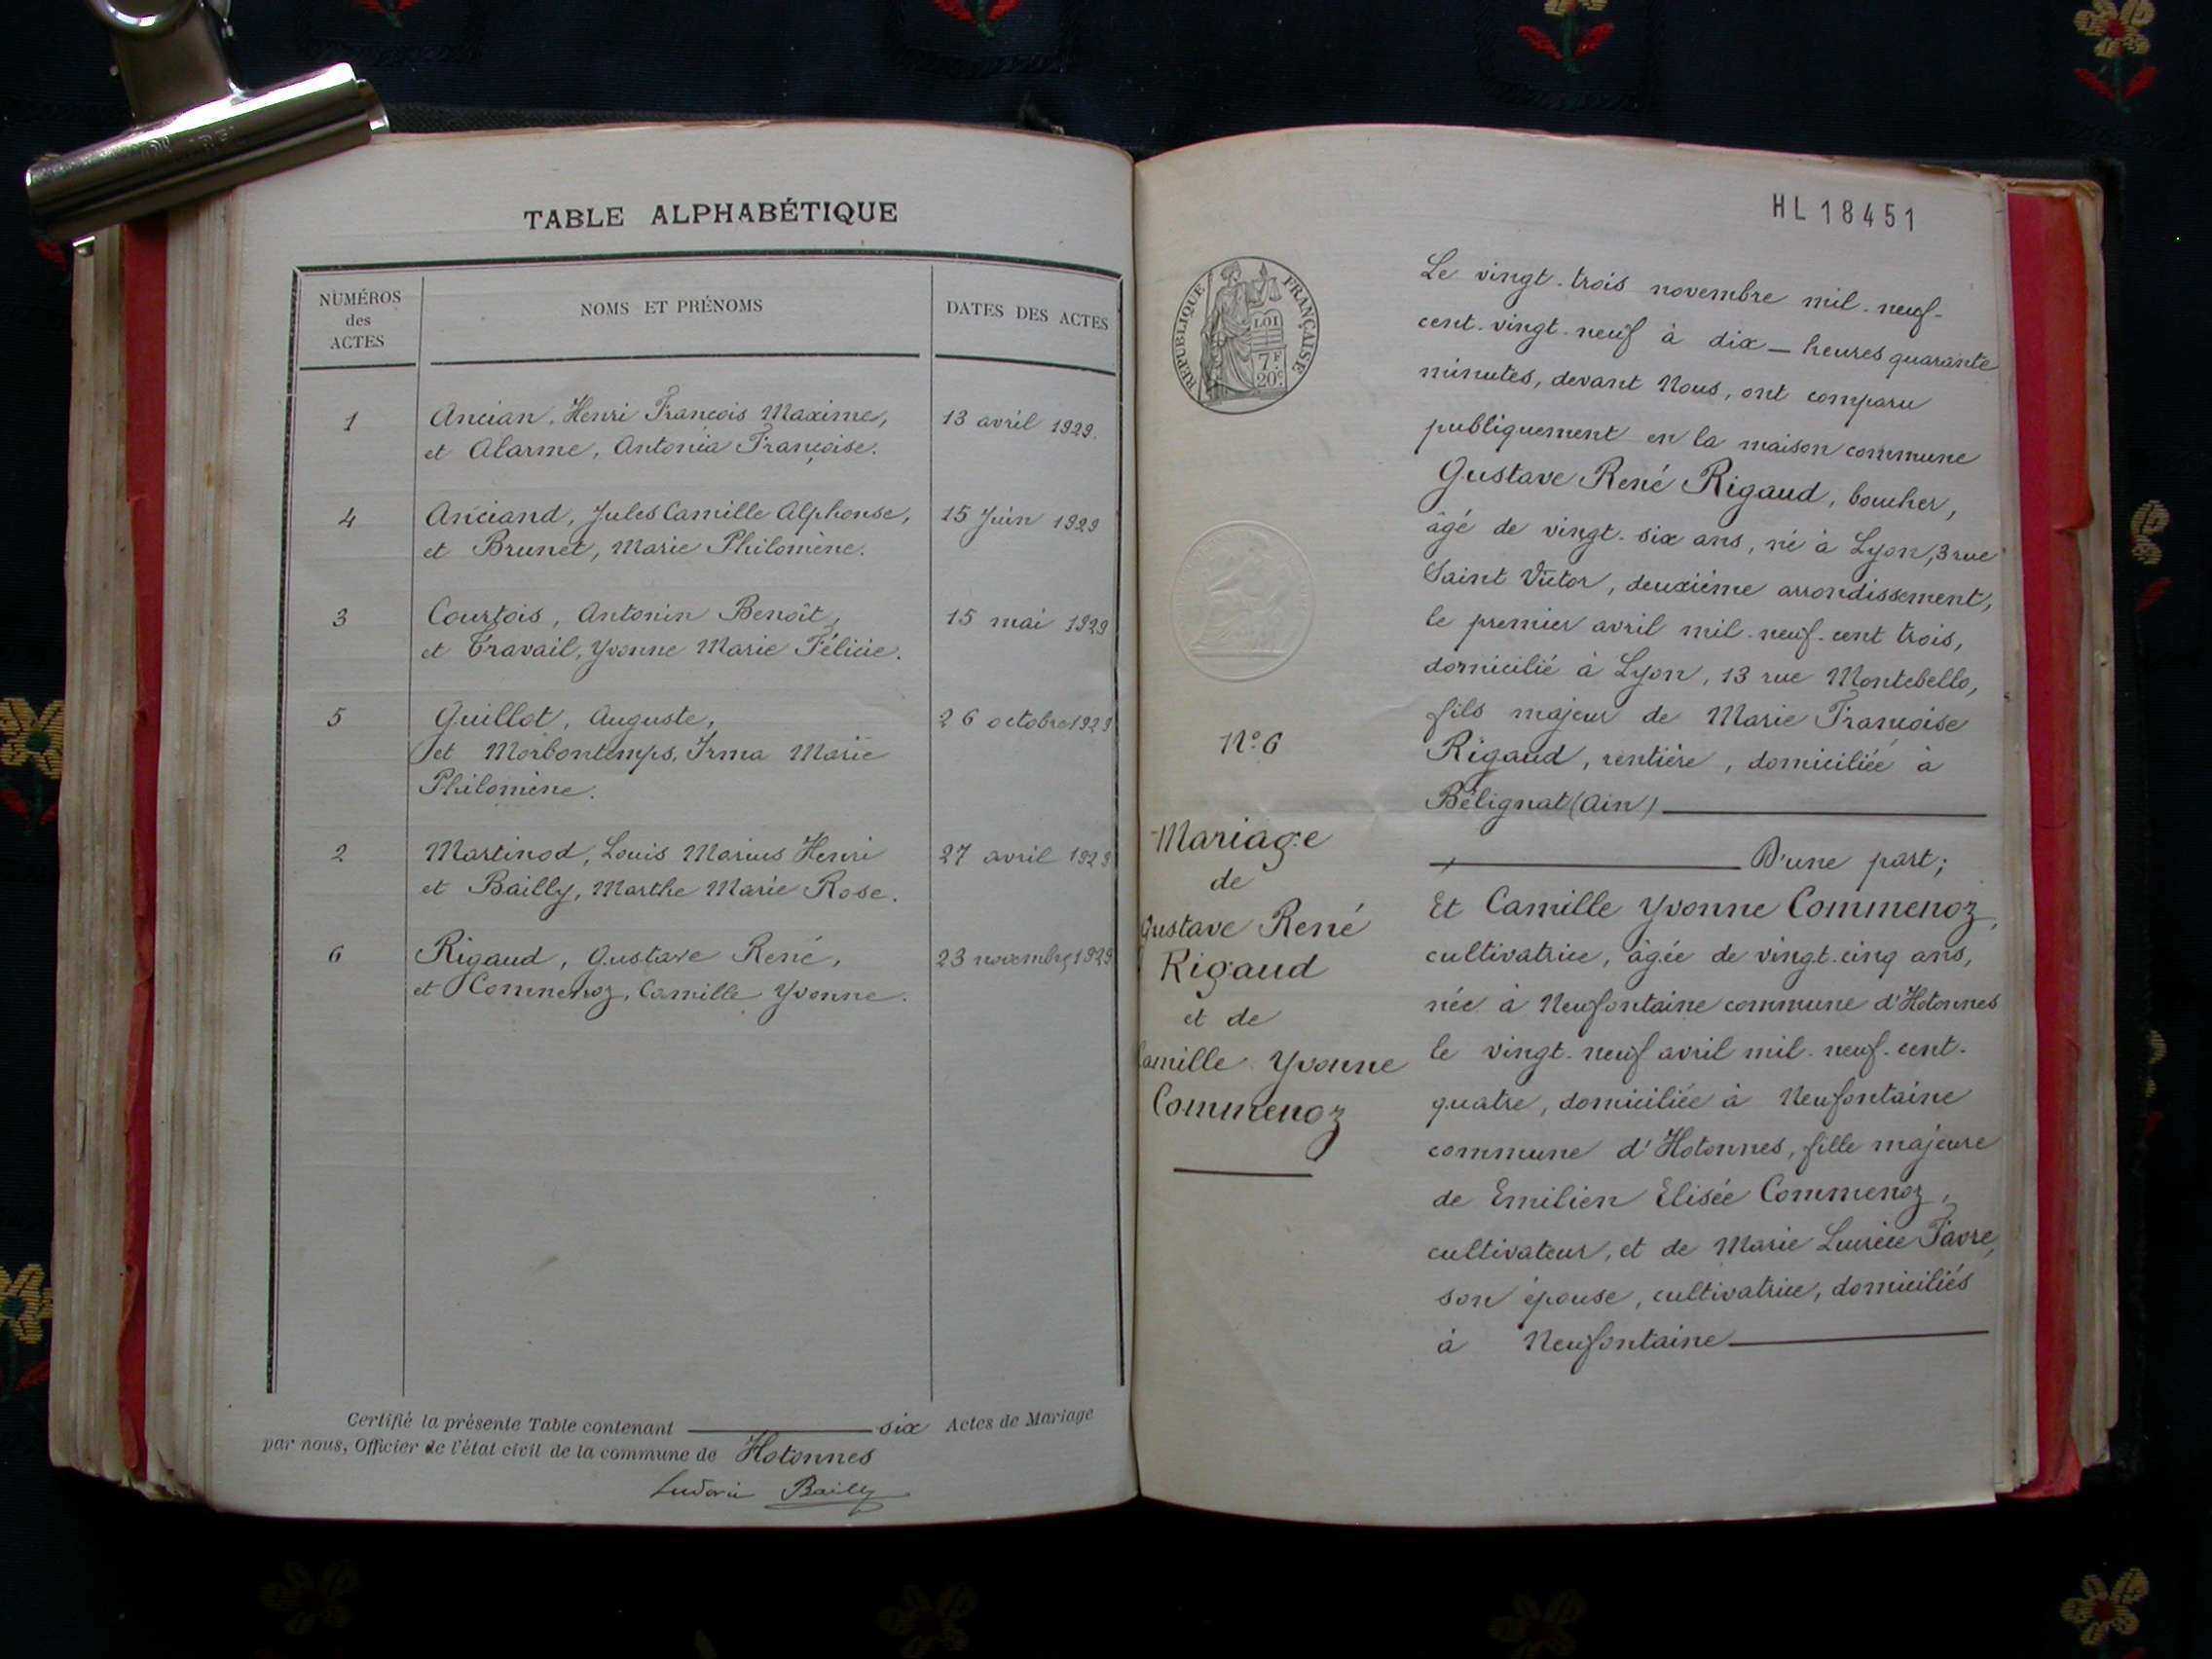 TABLE ALPHABÉTIQUE
NUMÉROS
des
ACTES
NOMS ET PRÉNOMS
DATES DES ACTES
1
Ancian, Henri François Maxime,
13 avril 1929.
et Alarme, Antonia Françoise.
4
Anciand, Jules Camille Alphonse,
15 Juin 1929
et Brunet, Marie Philomène.
3
Courtois, Antonin Benoît,
15 mai 1929
et Travail, Yvonne Marie Félicie.
5
Guillot, Auguste,
26 octobre 1929
et Morbontemps, Irma Marie
Philomène.
2
Martinod, Louis Marius Henri
27 avril 1929
et Bailly, Marthe Marie Rose.
6
Rigaud, Gustave René,
23 novembre 1929
et Commenoz, Camille Yvonne.
Certifié la présente Table contenant six Actes de Mariage
par nous, Officier de l'état civil de la commune de Hotonnes
Ludovic Bailly
HL 18451
RÉPUBLIQUE FRANÇAISE
LOI
7F
20c
N° 6
Mariage
de
Gustave René
Rigaud
et de
Camille Yvonne
Commenoz
Le vingt-trois novembre mil-neuf-
cent-vingt-neuf à dix — heures quarante
minutes, devant Nous, ont comparu
publiquement en la maison commune
Gustave René Rigaud, boucher,
âgé de vingt-six ans, né à Lyon, 3 rue
Saint Victor, deuxième arrondissement,
le premier avril mil-neuf-cent trois,
domicilié à Lyon, 13 rue Montebello,
fils majeur de Marie Françoise
Rigaud, rentière, domiciliée à
Bélignat (Ain)
D'une part;
Et Camille Yvonne Commenoz,
cultivatrice, âgée de vingt-cinq ans,
née à Neufontaine commune d'Hotonnes
le vingt-neuf avril mil-neuf-cent-
quatre, domiciliée à Neufontaine
commune d'Hotonnes, fille majeure
de Emilien Elisée Commenoz,
cultivateur, et de Marie Lucrèce Favre,
son épouse, cultivatrice, domiciliés
à Neufontaine